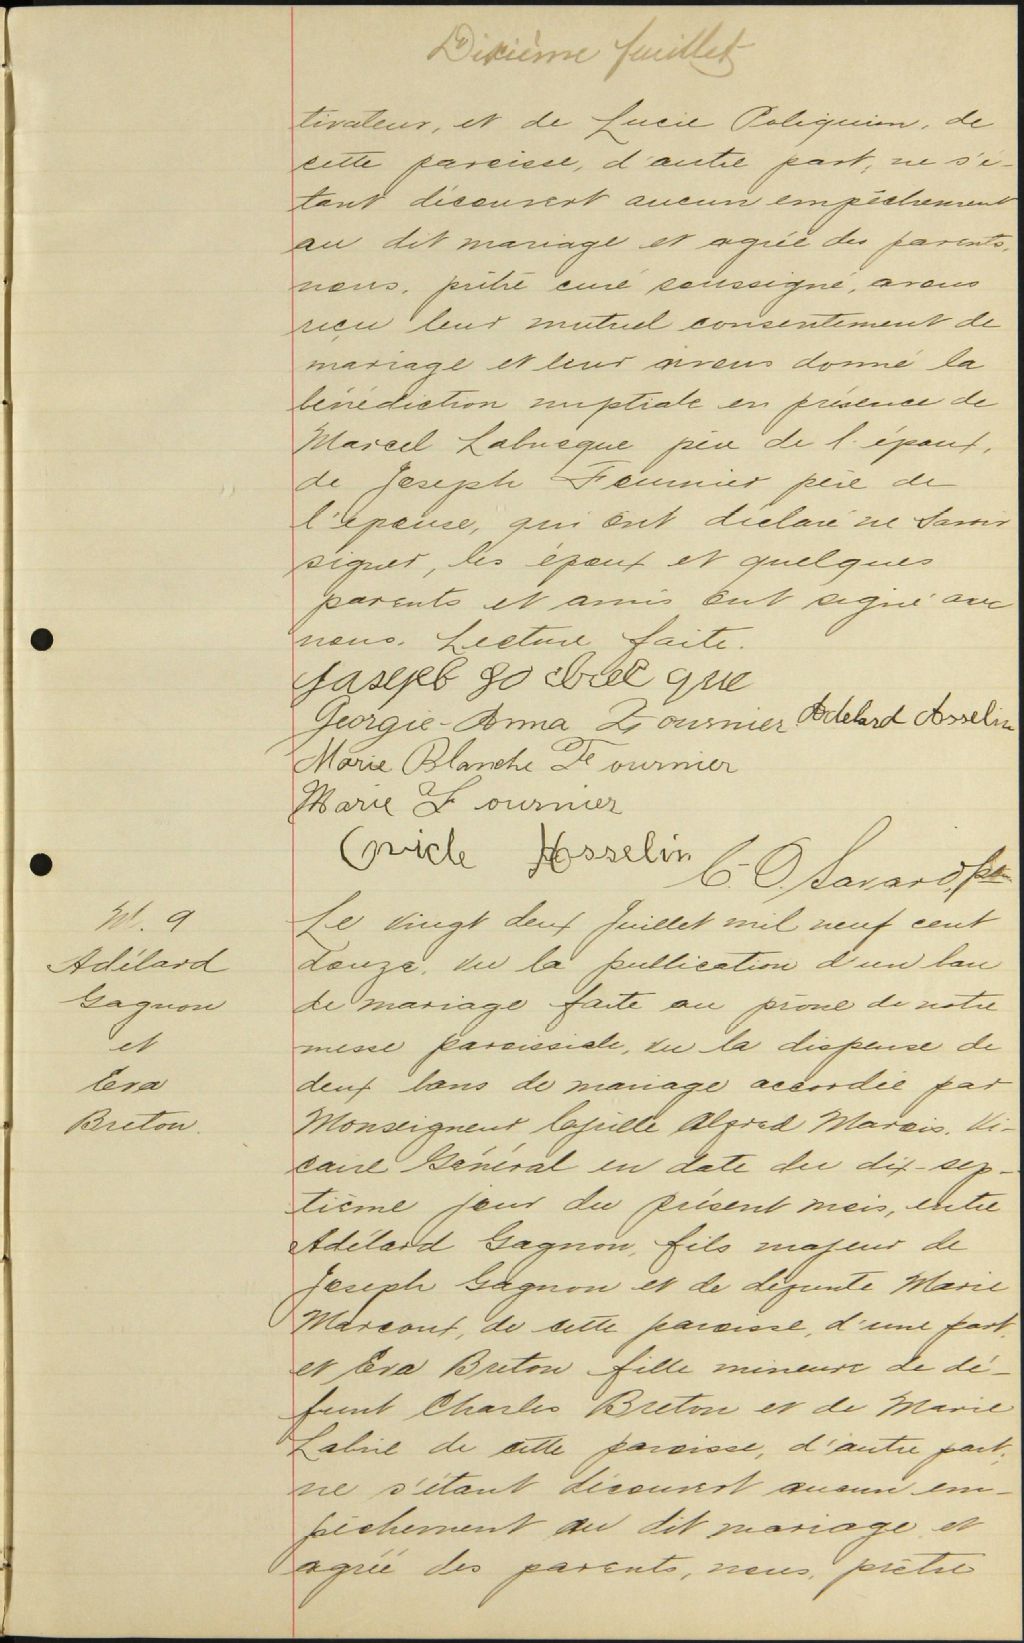 Dixième feuillet
tivateur, et de Lucie Poliquin, de
cette paroisse, d'autre part, ne s'é-
tant découvert aucun empêchement
au dit mariage et agrée des parents,
nous, prêtre curé soussigné, avons
reçu leur mutuel consentement de
mariage et leur avons donné la
bénédiction nuptiale en présence de
Marcel Labrecque père de l'époux,
de Joseph Fournier père de
l'épouse, qui ont déclaré ne savoir
signer, les époux et quelques
parents et amis ont signé avec
nous. Lecture faite.
Joseph
Georgie-Anna Fournier Adelard Asselin
Marie Blanche Fournier
Marie Fournier
Ovide Asselin
C. O. Savard, ptre
M. 9
Adélard
Gagnon
et
Eva
Breton.
Le vingt deux Juillet mil neuf cent
douze, vu la publication d'un ban
de mariage faite au prône de notre
messe paroissiale, vu la dispense de
deux bans de mariage accordée par
Monseigneur Cyrille Alfred Marois, Vi-
caire Général en date du dix-sep-
tième jour du présent mois, entre
Adélard Gagnon, fils majeur de
Joseph Gagnon et de défunte Marie
Marcoux, de cette paroisse, d'une part,
et Eva Breton fille mineure de dé-
funt Charles Breton et de Marie
Labrie de cette paroisse, d'autre part,
ne s'étant découvert aucun em-
pêchement au dit mariage et
agrée des parents, nous, prêtre